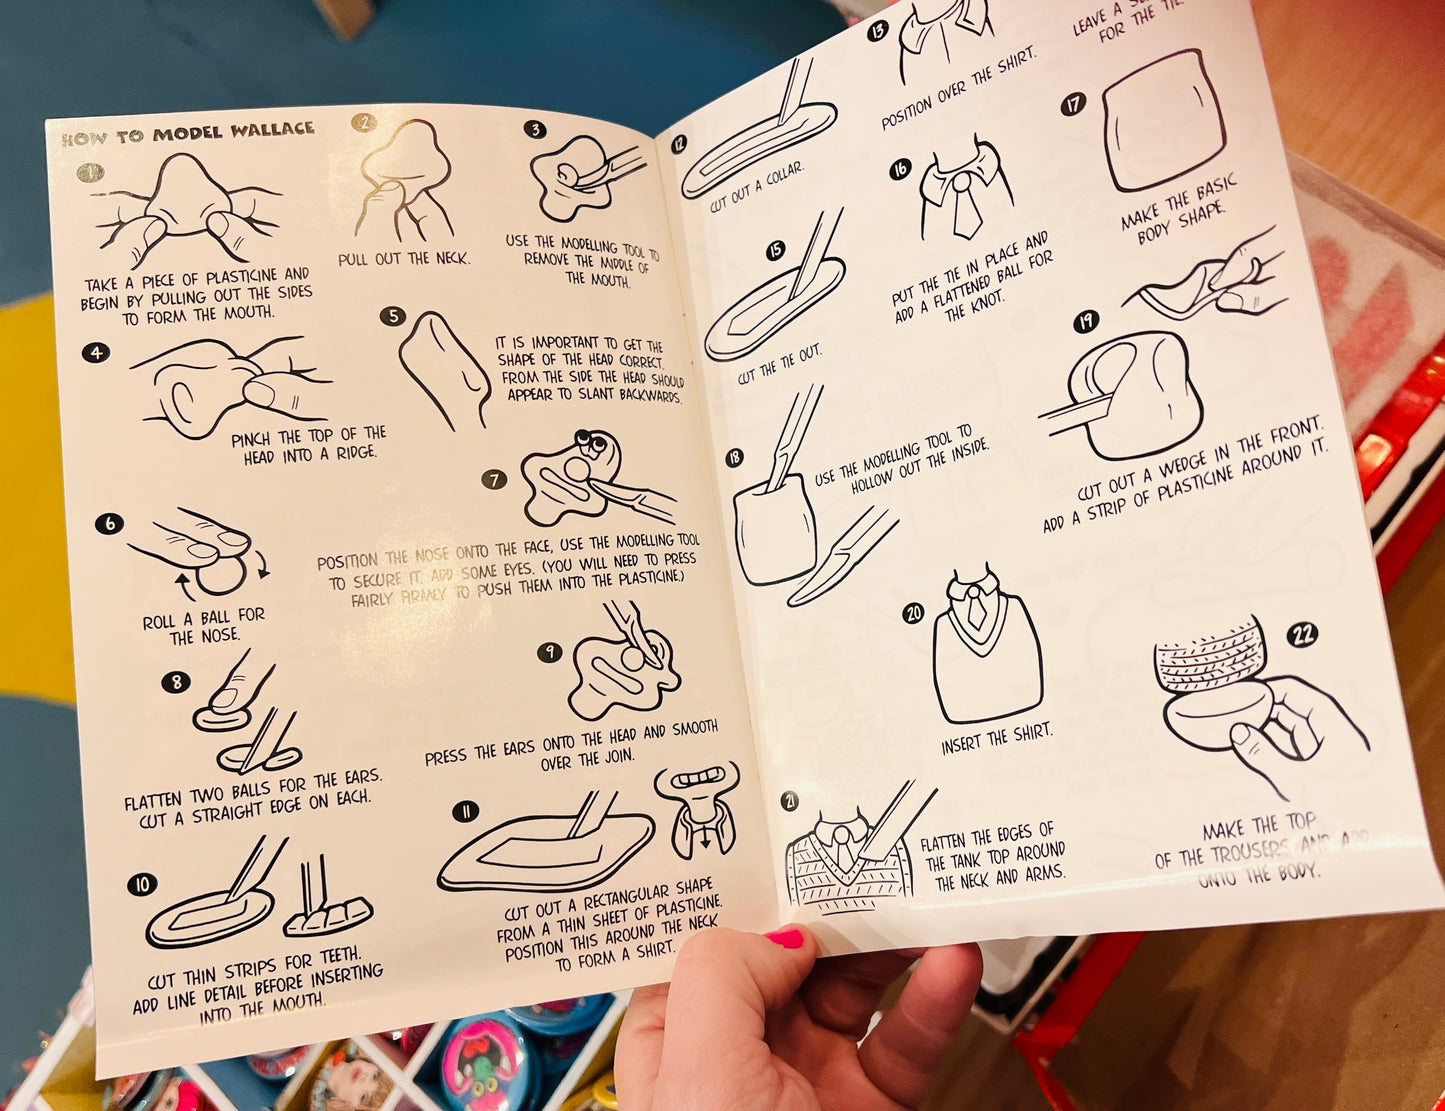 HOW TO MODEL WALLACE
1
TAKE A PIECE OF PLASTICINE AND
BEGIN BY PULLING OUT THE SIDES
TO FORM THE MOUTH.
2
PULL OUT THE NECK.
3
USE THE MODELLING TOOL TO
REMOVE THE MIDDLE OF
THE MOUTH.
4
PINCH THE TOP OF THE
HEAD INTO A RIDGE.
5
IT IS IMPORTANT TO GET THE
SHAPE OF THE HEAD CORRECT.
FROM THE SIDE THE HEAD SHOULD
APPEAR TO SLANT BACKWARDS.
6
ROLL A BALL FOR
THE NOSE.
7
POSITION THE NOSE ONTO THE FACE, USE THE MODELLING TOOL
TO SECURE IT. ADD SOME EYES. (YOU WILL NEED TO PRESS
FAIRLY FIRMLY TO PUSH THEM INTO THE PLASTICINE.)
8
FLATTEN TWO BALLS FOR THE EARS.
CUT A STRAIGHT EDGE ON EACH.
9
PRESS THE EARS ONTO THE HEAD AND SMOOTH
OVER THE JOIN.
10
CUT THIN STRIPS FOR TEETH.
ADD LINE DETAIL BEFORE INSERTING
INTO THE MOUTH.
11
CUT OUT A RECTANGULAR SHAPE
FROM A THIN SHEET OF PLASTICINE.
POSITION THIS AROUND THE NECK
TO FORM A SHIRT.
12
CUT OUT A COLLAR.
13
POSITION OVER THE SHIRT.
LEAVE A
FOR THE TIE.
15
CUT THE TIE OUT.
16
PUT THE TIE IN PLACE AND
ADD A FLATTENED BALL FOR
THE KNOT.
17
MAKE THE BASIC
BODY SHAPE.
18
USE THE MODELLING TOOL TO
HOLLOW OUT THE INSIDE.
19
CUT OUT A WEDGE IN THE FRONT.
ADD A STRIP OF PLASTICINE AROUND IT.
20
INSERT THE SHIRT.
21
FLATTEN THE EDGES OF
THE TANK TOP AROUND
THE NECK AND ARMS.
22
MAKE THE TOP
OF THE TROUSERS AND ADD
ONTO THE BODY.